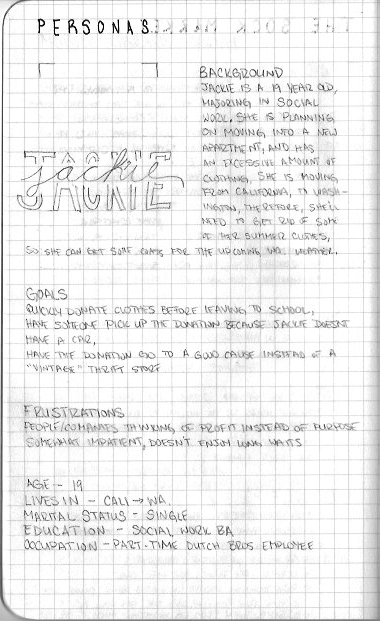 PERSONAS
jackie
JACKIE
BACKGROUND
JACKIE IS A 19 YEAR OLD,
MAJORING IN SOCIAL
WORK, SHE IS PLANNING
ON MOVING INTO A NEW
APARTMENT, AND HAS
AN EXCESSIVE AMOUNT OF
CLOTHING, SHE IS MOVING
FROM CALIFORNIA, TO WASH-
INGTON, THEREFORE, SHE'LL
NEED TO GET RID OF SOME
OF HER SUMMER CLOTHES,
SO SHE CAN GET SOME COATS FOR THE UPCOMING WA. WEATHER.
GOALS
QUICKLY DONATE CLOTHES BEFORE LEAVING TO SCHOOL,
HAVE SOMEONE PICK UP THE DONATION BECAUSE JACKIE DOESN'T
HAVE A CAR,
HAVE THE DONATION GO TO A GOOD CAUSE INSTEAD OF A
"VINTAGE" THRIFT STORE
FRUSTRATIONS
PEOPLE/COMPANIES THINKING OF PROFIT INSTEAD OF PURPOSE
SOMEWHAT IMPATIENT, DOESN'T ENJOY LONG WAITS
AGE - 19
LIVES IN - CALI → WA.
MARITAL STATUS - SINGLE
EDUCATION - SOCIAL WORK BA
OCCUPATION - PART-TIME DUTCH BROS EMPLOYEE